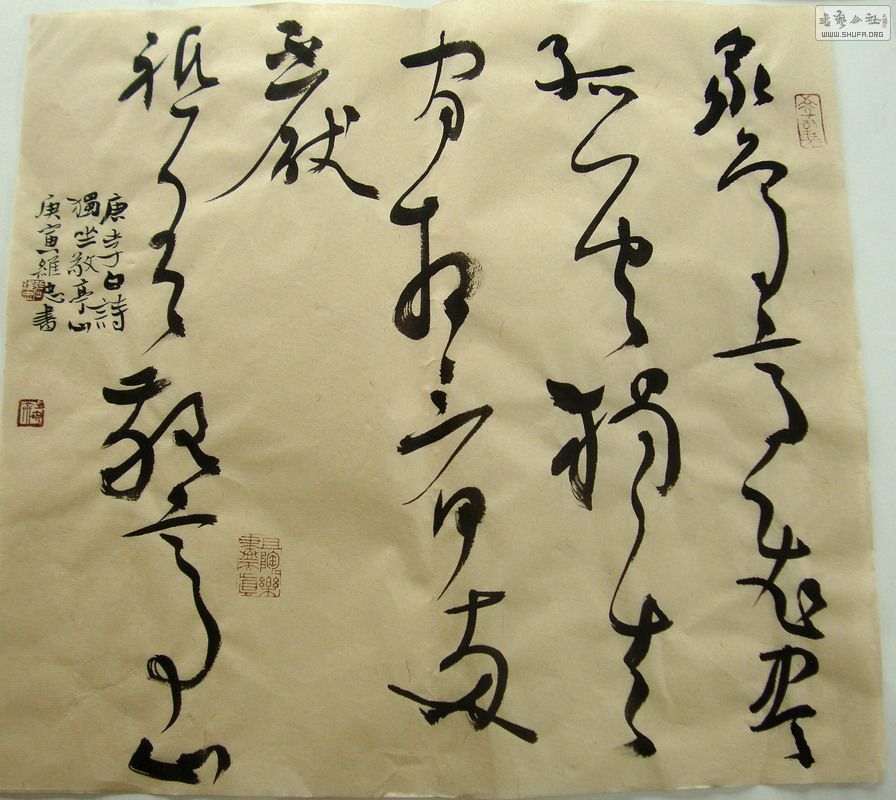 衆鳥高飛盡
孤雲獨去
閒相看兩
不厭
祗有敬亭山
唐李白詩
獨坐敬亭山
庚寅維忠書
書藝公社
WWW.SHUFA.ORG